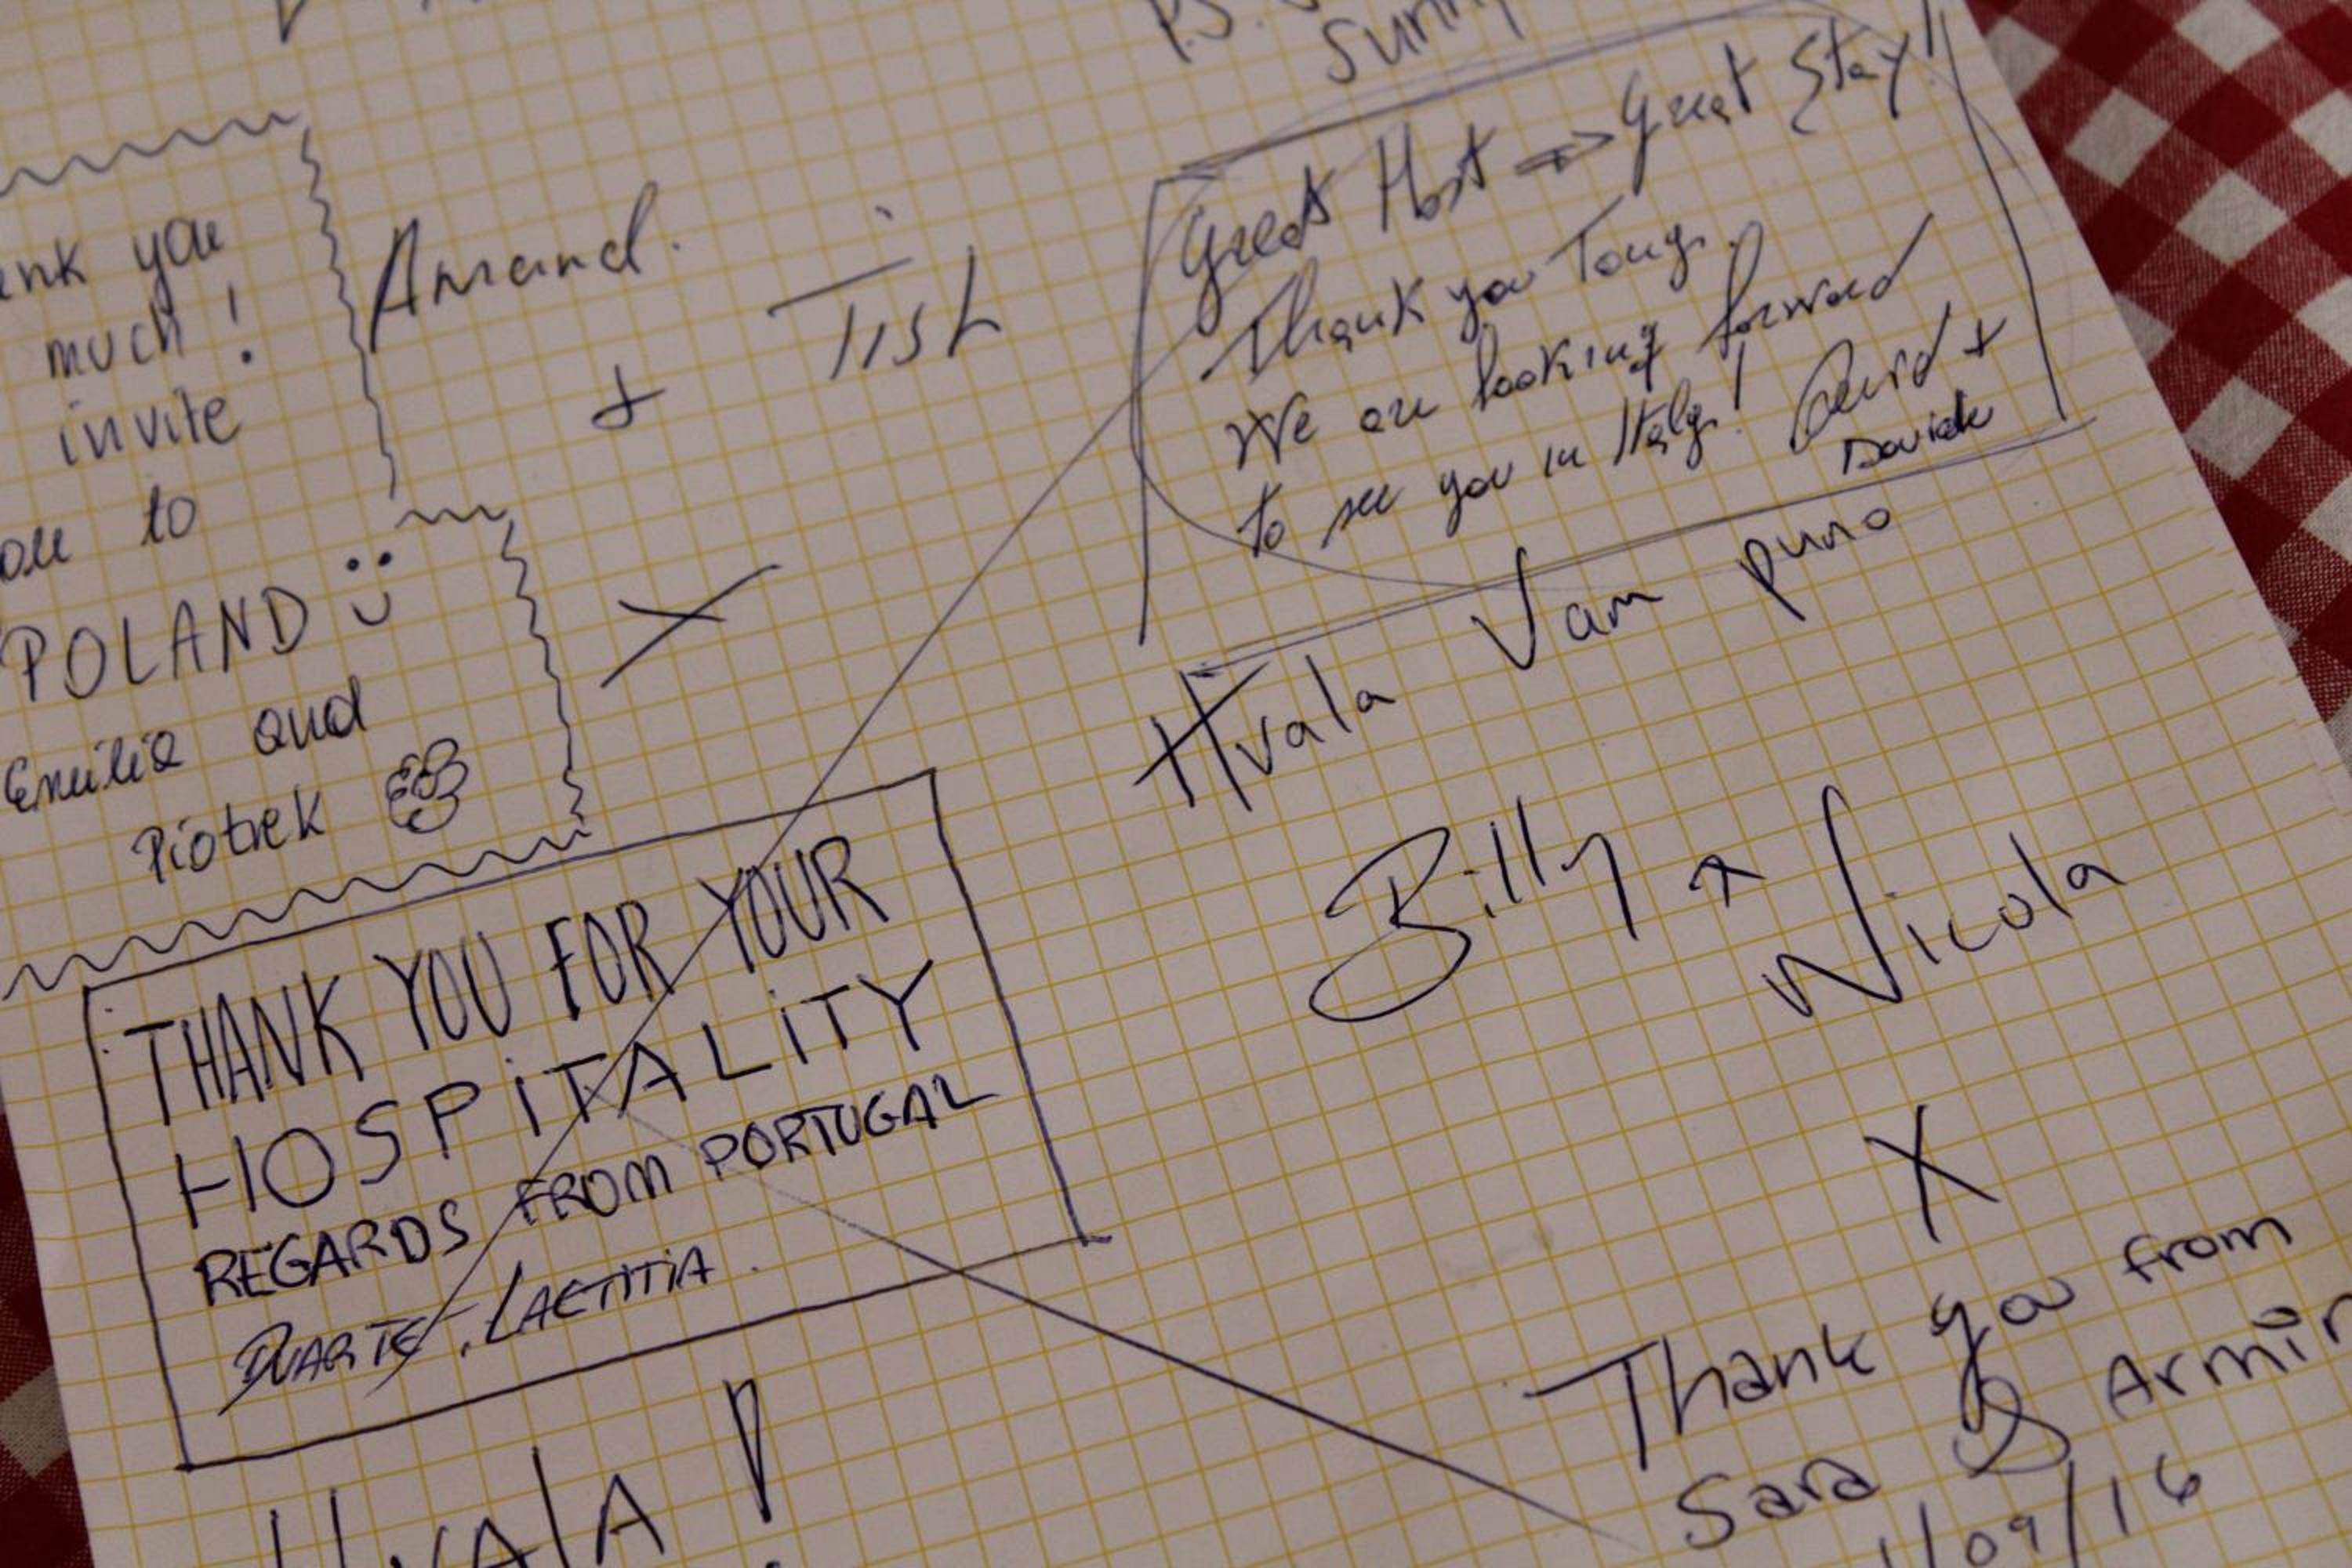 P.S.
Sunny
you
much!
invite
to
POLAND
Emilia and
Piotrek
Amand.
+
Tish
X
Great Host => great Stay!!
Thank you
We are looking forward
to see you in Italy! David +
Davide
Hvala Vam puno
Billy +
Nicola
X
THANK YOU FOR YOUR
HOSPiTALiTY
REGARDS FROM PORTUGAL
DUARTE, LAETITIA.
HvAlA !
Thank you from
Sara & Armin
/09/16